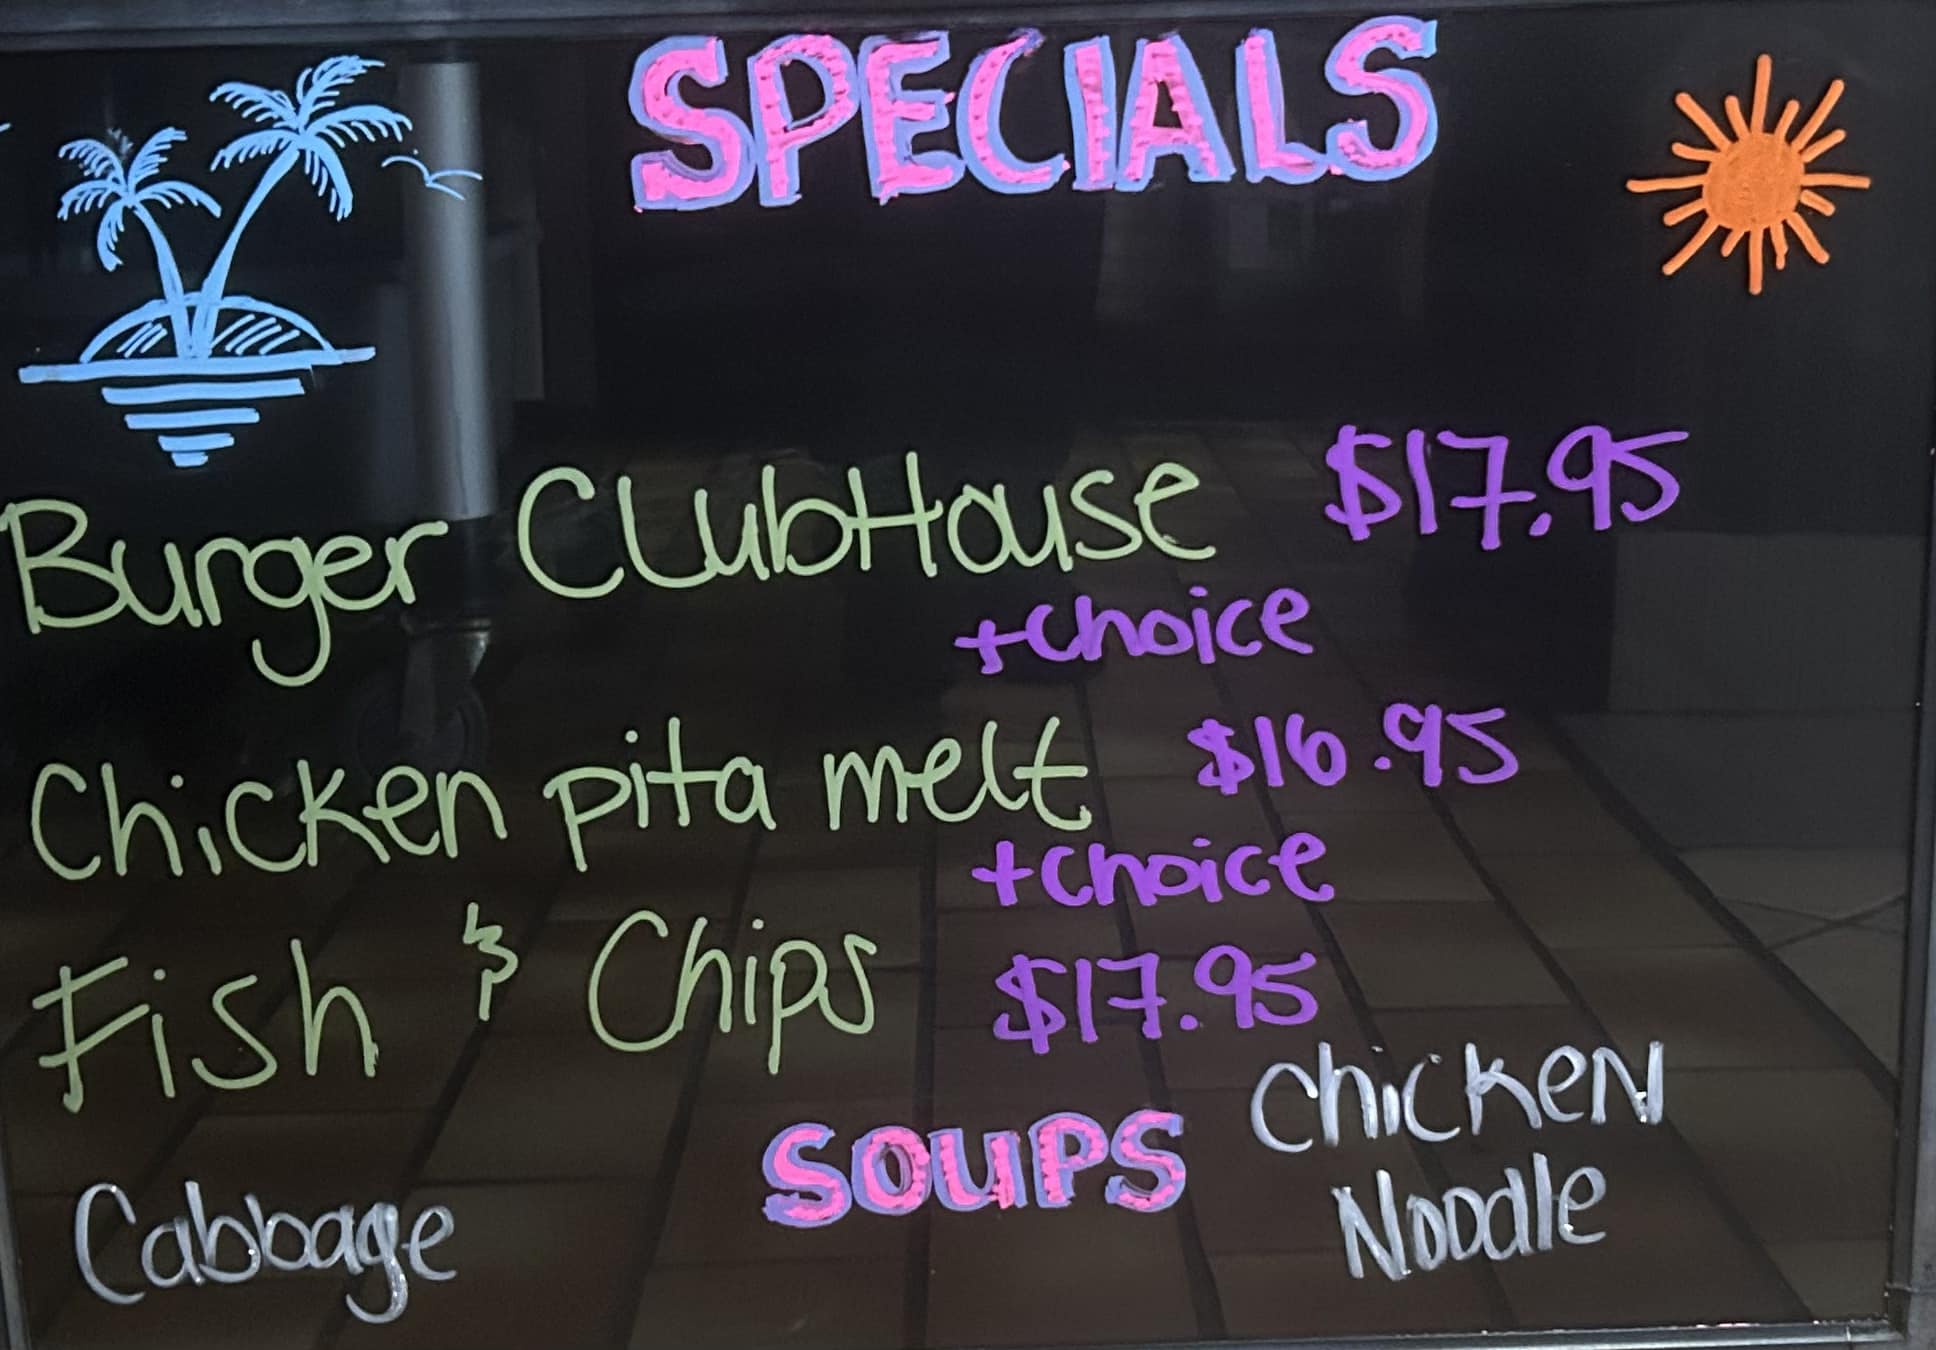 SPECIALS
Burger ClubHouse $17.95
+choice
Chicken pita melt $16.95
+choice
Fish & Chips $17.95
SOUPS
Cabbage
Chicken
Noodle